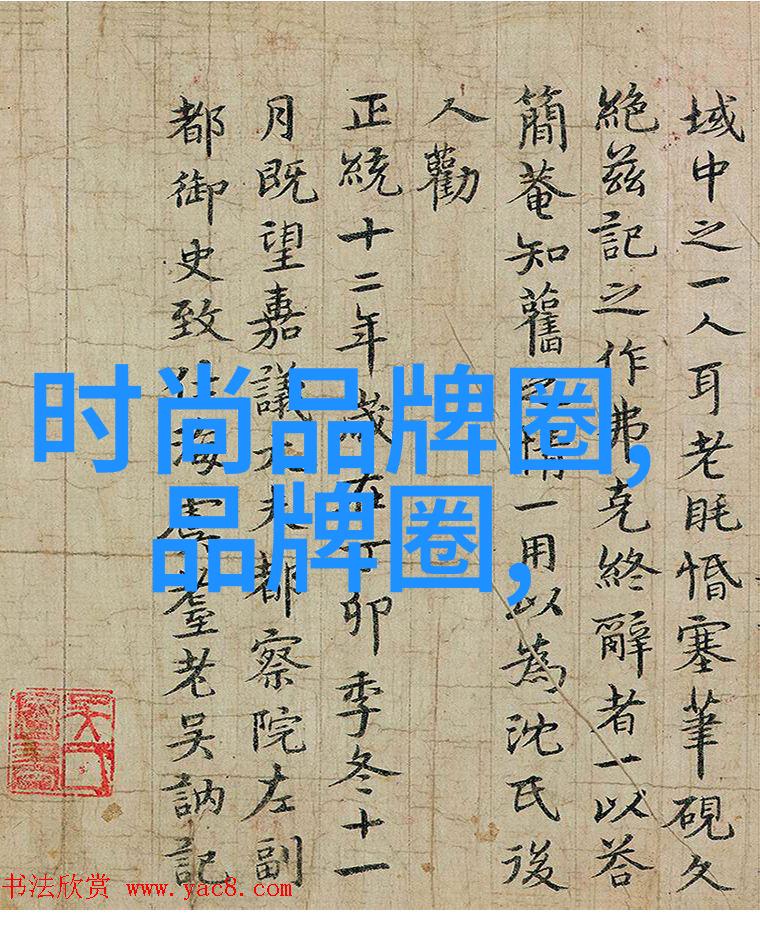 域中之一人耳老眊惛塞筆硯久
絶兹記之作弗克終辭者一以荅
簡菴知舊之情一用以為沈氏後
人勸
正統十二年歲在丁卯季冬十一
月既望嘉議大夫都察院左副
都御史致仕海虞耋老吳訥記
时尚品牌圈,
品牌圈,
书法欣赏 www.yac8.com